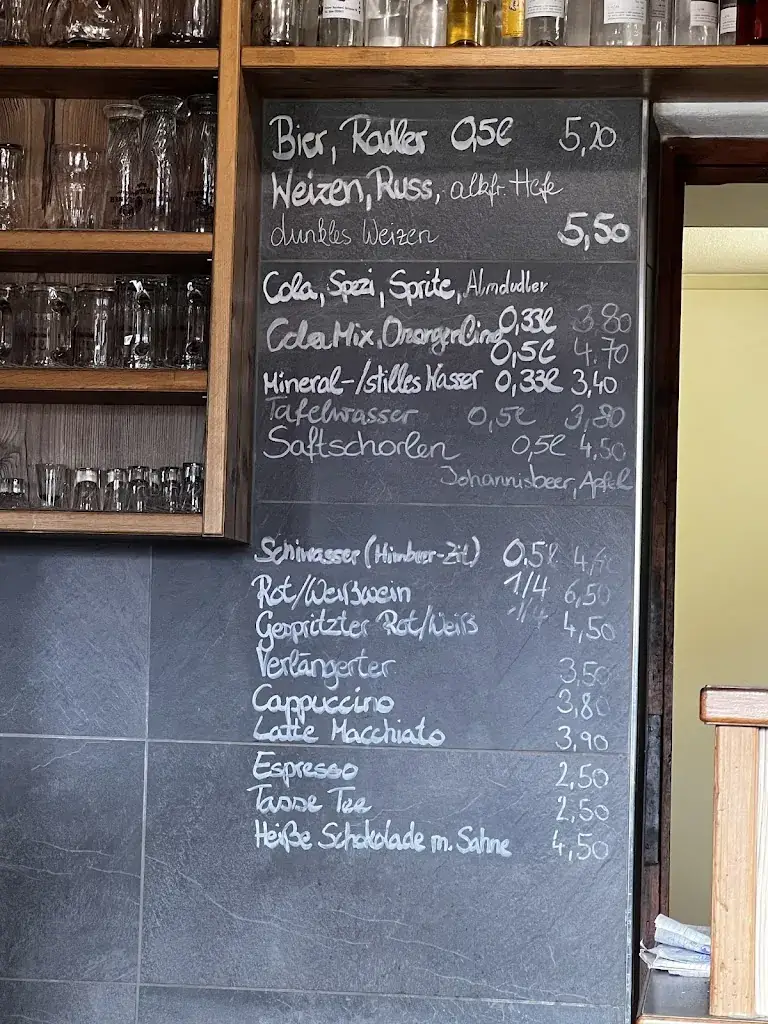 Bier, Radler 0,5l 5,20
Weizen, Russ, alkfr. Hefe
dunkles Weizen 5,50
Cola, Spezi, Sprite, Almdudler
0,33l 3,80
Cola Mix, Orangenlimo
0,5l 4,70
Mineral-/stilles Wasser 0,33l 3,40
Tafelwasser 0,5l 3,80
Saftschorlen 0,5l 4,50
Johannisbeer, Apfel
Schiwasser (Himbeer-Zit) 0,5l
Rot/Weißwein 1/4 6,50
Gespritzter Rot/Weiß 1/4 4,50
Verlängerter 3,50
Cappuccino 3,80
Latte Macchiato 3,90
Espresso 2,50
Tasse Tee 2,50
Heiße Schokolade m. Sahne 4,50